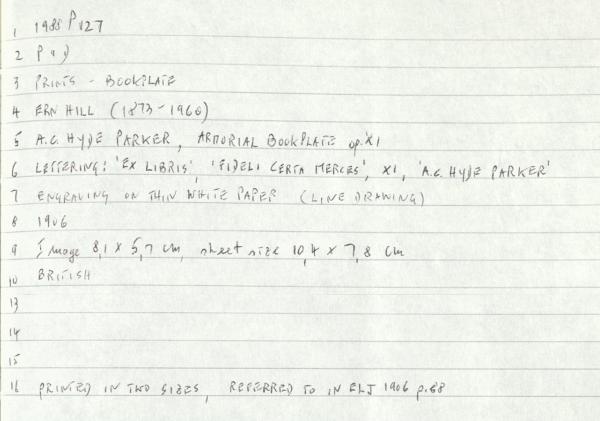 1 1988 P 127
2 P
3 PRINTS - BOOKPLATE
4 ERN HILL (1873-1960)
5 A.C. HYDE PARKER, ARMORIAL BOOKPLATE op. XI
6 LETTERING: 'EX LIBRIS', 'FIDELI CERTA MERCES', XI, 'A.C. HYDE PARKER'
7 ENGRAVING ON THIN WHITE PAPER (LINE DRAWING)
8 1906
9 Image 8,1 x 5,7 cm, sheet size 10,4 x 7,8 cm
10 BRITISH
13
14
15
16 PRINTED IN TWO SIZES, REFERRED TO IN ELJ 1906 p.68